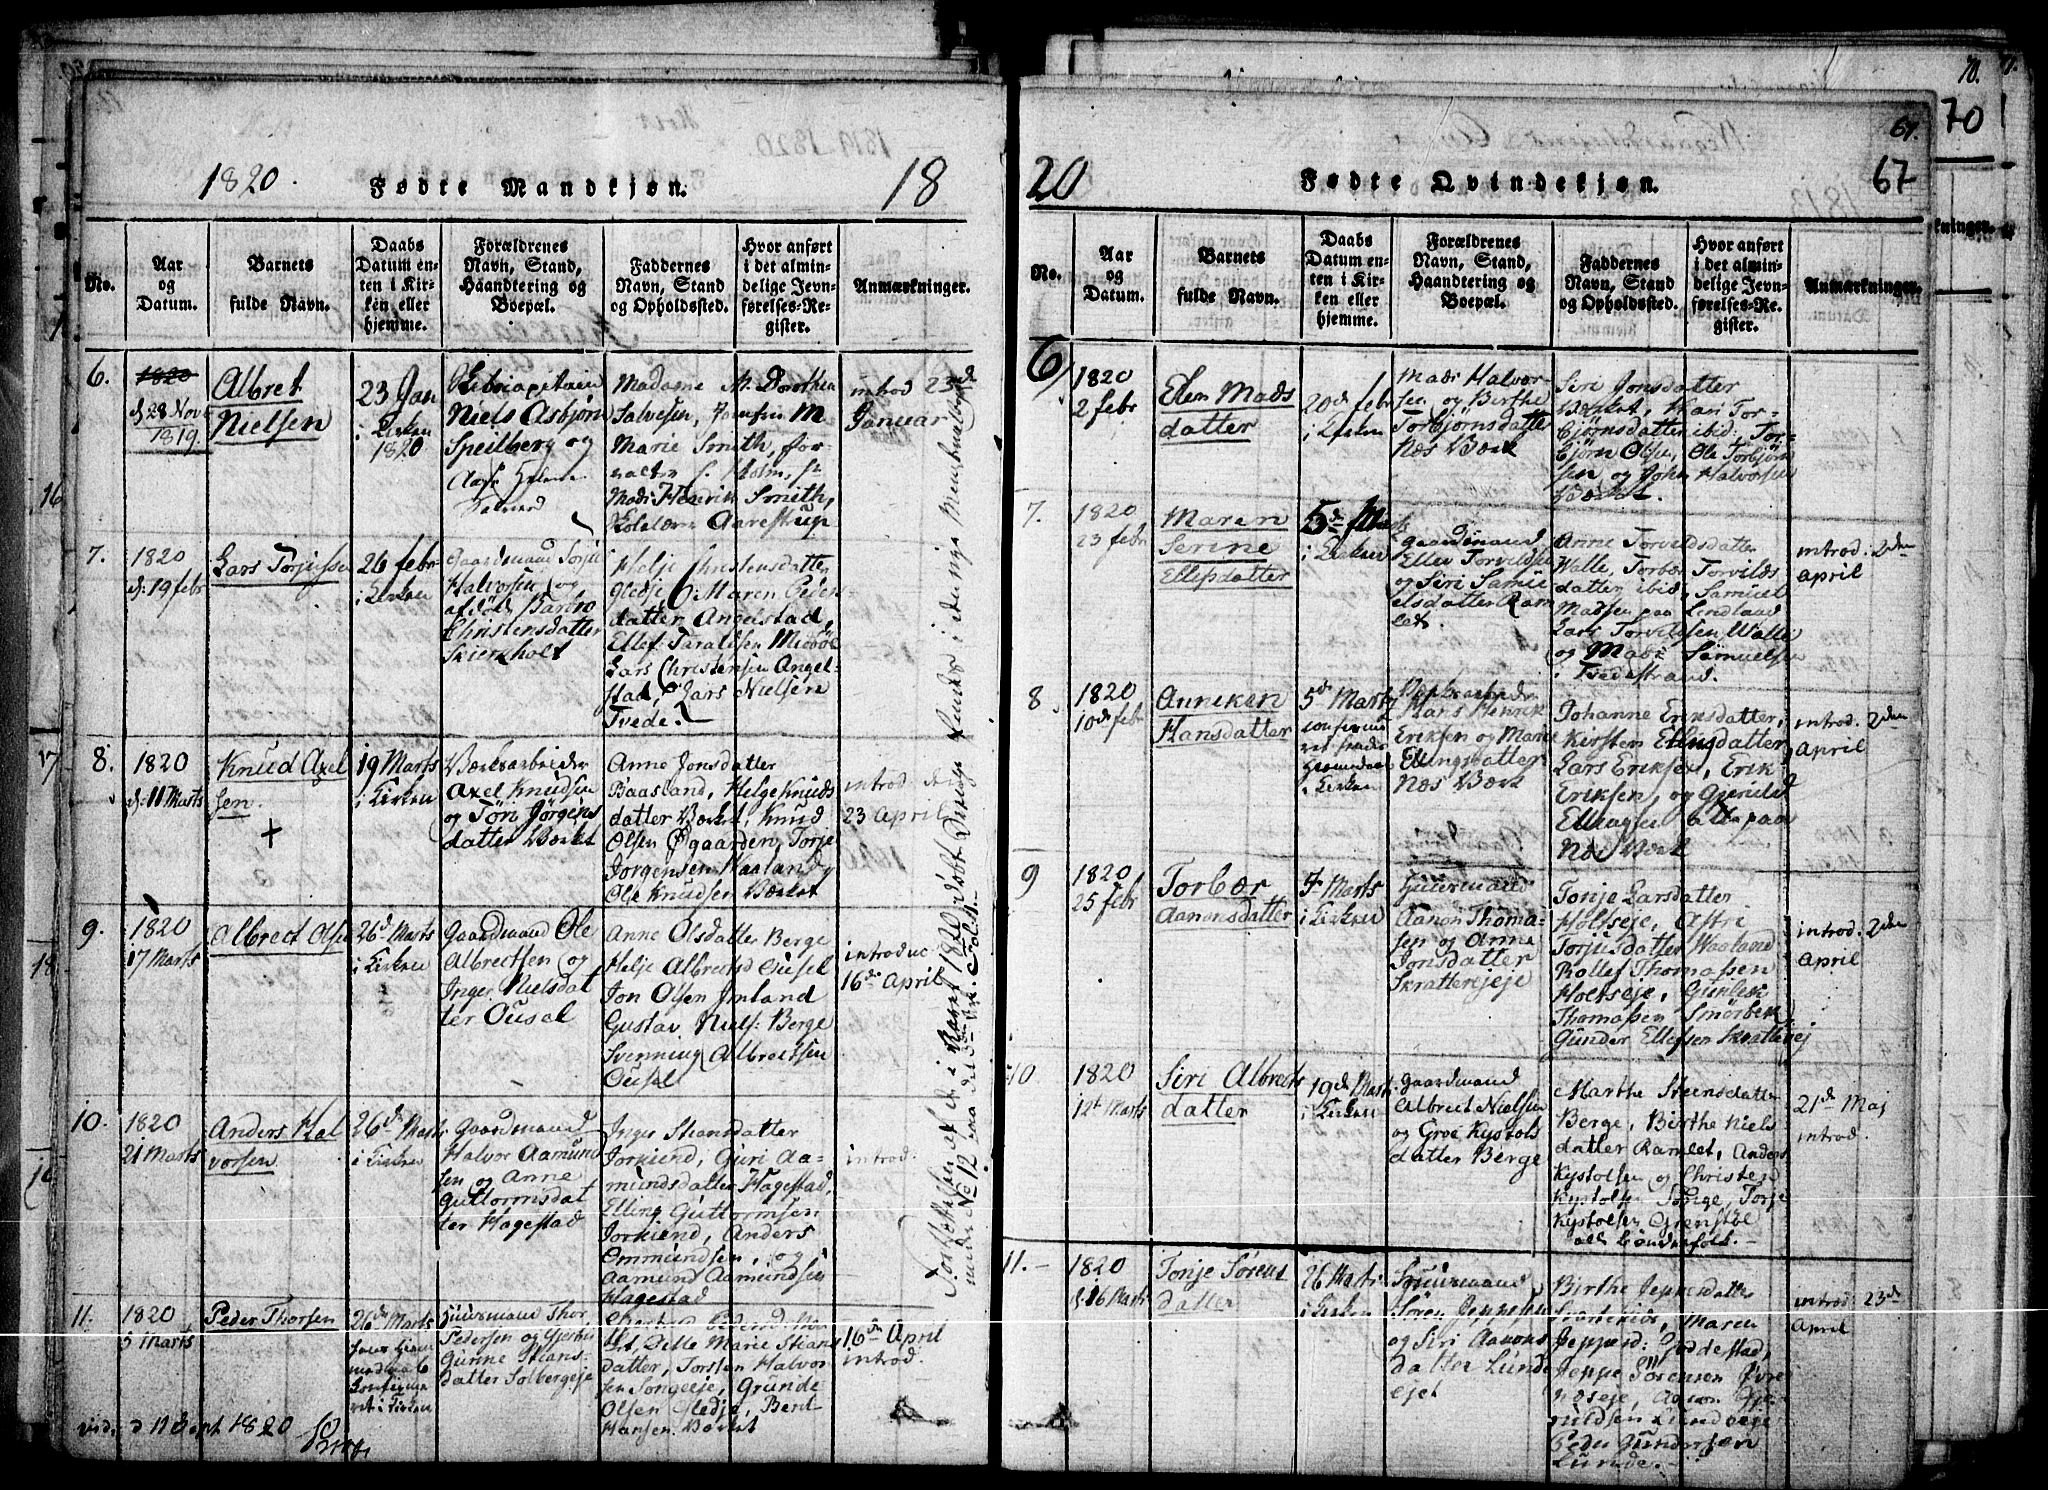 1820.
Fødte Mandkjøn.
18
No.
Aar
og
Datum.
Barnets
fulde Navn.
Daabs
Datum en-
ten i Kir-
ken eller
hjemme.
Forældrenes
Navn, Stand,
Haandtering og
Boepæl.
Faddernes
Navn, Stand
og Opholdssted.
Hvor anført
i det almin-
delige Jevn-
førelses-Re-
gister.
Anmærkninger.
6.
1820
d. 28 Nov
1819.
Albret
Nielsen
23 Jan
i Kirken
1820
Niels Asbjørn
Speilberg og
Madame M. Dorothea
Salvesen, Jomfru M
Marie Smith, for-
valter Holm,
Mads Henrik Smith,
Aarestrup
introd 23de
Januar
7.
1820
d. 19 febr
Lars Torjussen
26 febr
i Kirken
Gaardmand Torju
Halvorsen og
afdöde Barbro
Christensdatter
Skierkholt
Helje Christensdatter
Gledje, Maren Peders
datter Angelstad,
Ellef Taraldsen
Lars Christensen Angel-
stad, Lars Nielsen
Tvede.
8.
1820
d. 11 Marts
Knud Axel
sen.
+
19 Marts
i Kirken
Værksarbeider
Axel Knudsen
og Töri Jörgens
datter Værket
Anne Jonsdatter
Baasland, Helge Knuds
datter Værket, Knud
Olsen Øgaarden, Torje
Jörgensen Waaland og
Ole Knudsen Værket
introd
23 April
9.
1820
17 Marts
Albrect Olsen
26de Marts
i Kirken
Gaardmand Ole
Albrectsen og
Inger Nielsdat
ter Ousel
Anne Olsdatter Berge
Helje Albrectsd Ousel
Jon Olsen Imland
Gustav Niels: Berge
Svenning Albrectsen
Ousel
introduc
16de April
10.
1820
21 Marts
Anders Hal
vorsen
26de Marts
i Kirken
Gaardmand
Halvor Aamund
sen og Anne
Guttormsdat
ter Hagestad
Inger Stiansdatter
Jorkiend, Guri Aa-
mundsdatter Hagestad,
Elling Guttormsen
Jorkiend, Anders
Ommundsen, og
Aamund Aamundsen
Hagestad
introd.
11.
1820
5 Marts
Peder Thorsen
26de Marts
i Kirken
Huusmand Thor
Pedersen og
Gunne Stians-
datter Solbergeje
Marie Stians
datter, Torsten Halvor
sen Songeeje, Grunde
Olsen Gledje, Bent
Hansen Værket
16de April
introd.
vid. d 11 Sept 1820
Fortsættelsen af de i Aaret 1820 döbte Drenge findes i den nye Ministerialbog
under No 12 paa det 3die Fol.
20
Fødte Qvindekjøn.
67.
67
70
70.
kninger.
No.
Aar
og
Datum.
Barnets
fulde Navn.
Daabs
Datum en-
ten i Kir-
ken eller
hjemme.
Forældrenes
Navn, Stand,
Haandtering og
Boepæl.
Faddernes
Navn, Stand
og Opholdssted.
Hvor anført
i det almin-
delige Jevn-
førelses-Re-
gister.
Anmærkninger.
6
1820
2 febr
Elen Mads
datter
20de febr
i Kirken
Mads Halvor-
sen og Birthe
Torbjörnsdatter
Næs Værk
Siri Jonsdatter
Værket, Kari Tor-
björnsdatter ibid: Tor-
björn Olsen, Ole Torbjörn
sen og Johan Halvorsen
Værket.
7.
1820
23 febr
Maren
Serine
Ellefsdatter
5de Marts
i Kirken
Gaardmand
Ellev Torvildsen
og Siri Samu
elsdatter Ram
let.
Anne Torvildsdatter
Walle, Torbær Torvilds
datter ibid, Samuel
Madsen paa Lindland
Lars Torvildsen Walle
og Mads Samuelsen
i Tvedestrand.
introd: 2den
April
8
1820
10de febr
Anneken
Hansdatter
5de Marts
i Kirken
Hans Henrik
Eriksen og Marie
Ellingsdatter
Næs Værk
Johanne Eriksdatter,
Kirsten Ellingsdatter
Lars Eriksen, Erik
Eriksen og Gjeruld
Ellingsen alle paa
Næs Værk
introd: 2den
April
9
1820
25 febr
Torbær
Aanonsdatter
Marts
i Kirken
Huusmand
Aanon Thoma-
sen og Anne
Jonsdatter
Skratterejeje
Tonje Larsdatter
Holtseje, Astri
Torjusdatter Waaland
Rollef Thomassen
Holtseje, Gunlek
Thomassen Smörbek
Gunder Ellefsen Skratterej
introd: 2den
April
10
1820
12te Marts
Siri Albrects
datter
19de Marts
i Kirken
Gaardmand
Albrect Nielsen
og Groe Kystols
datter Berge
Marthe Steensdatter
Berge, Birthe Niels
datter Ramlet, Anders
Kystolsen og Christen
Kystolsen Songe, Torje
Kystolsen Grenstöl
alle Bondefolk.
21de Maj
introd.
11.
1820
d. 16 Marts
Tonje Sörens
datter
26 Marts
i Kirken
Huusmand
Sören Jeppesen
og Siri Aanons
datter Lunde
ejet
Birthe Jeppesdatter
Maren
Jeppesd: Goddestad,
Jeppe Sörensen
Aanon Gje-
ruldsen Lundveje
Peder Gundersen
Lunde.
introd: 23de
April